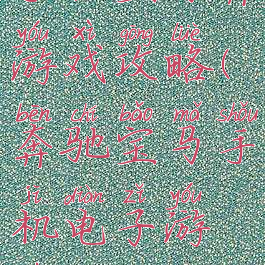 yóu xì gōng lüè
游戏攻略(
bēn chí bǎo mǎ shǒu
奔驰宝马手
jī diàn zǐ yóu
机电子游